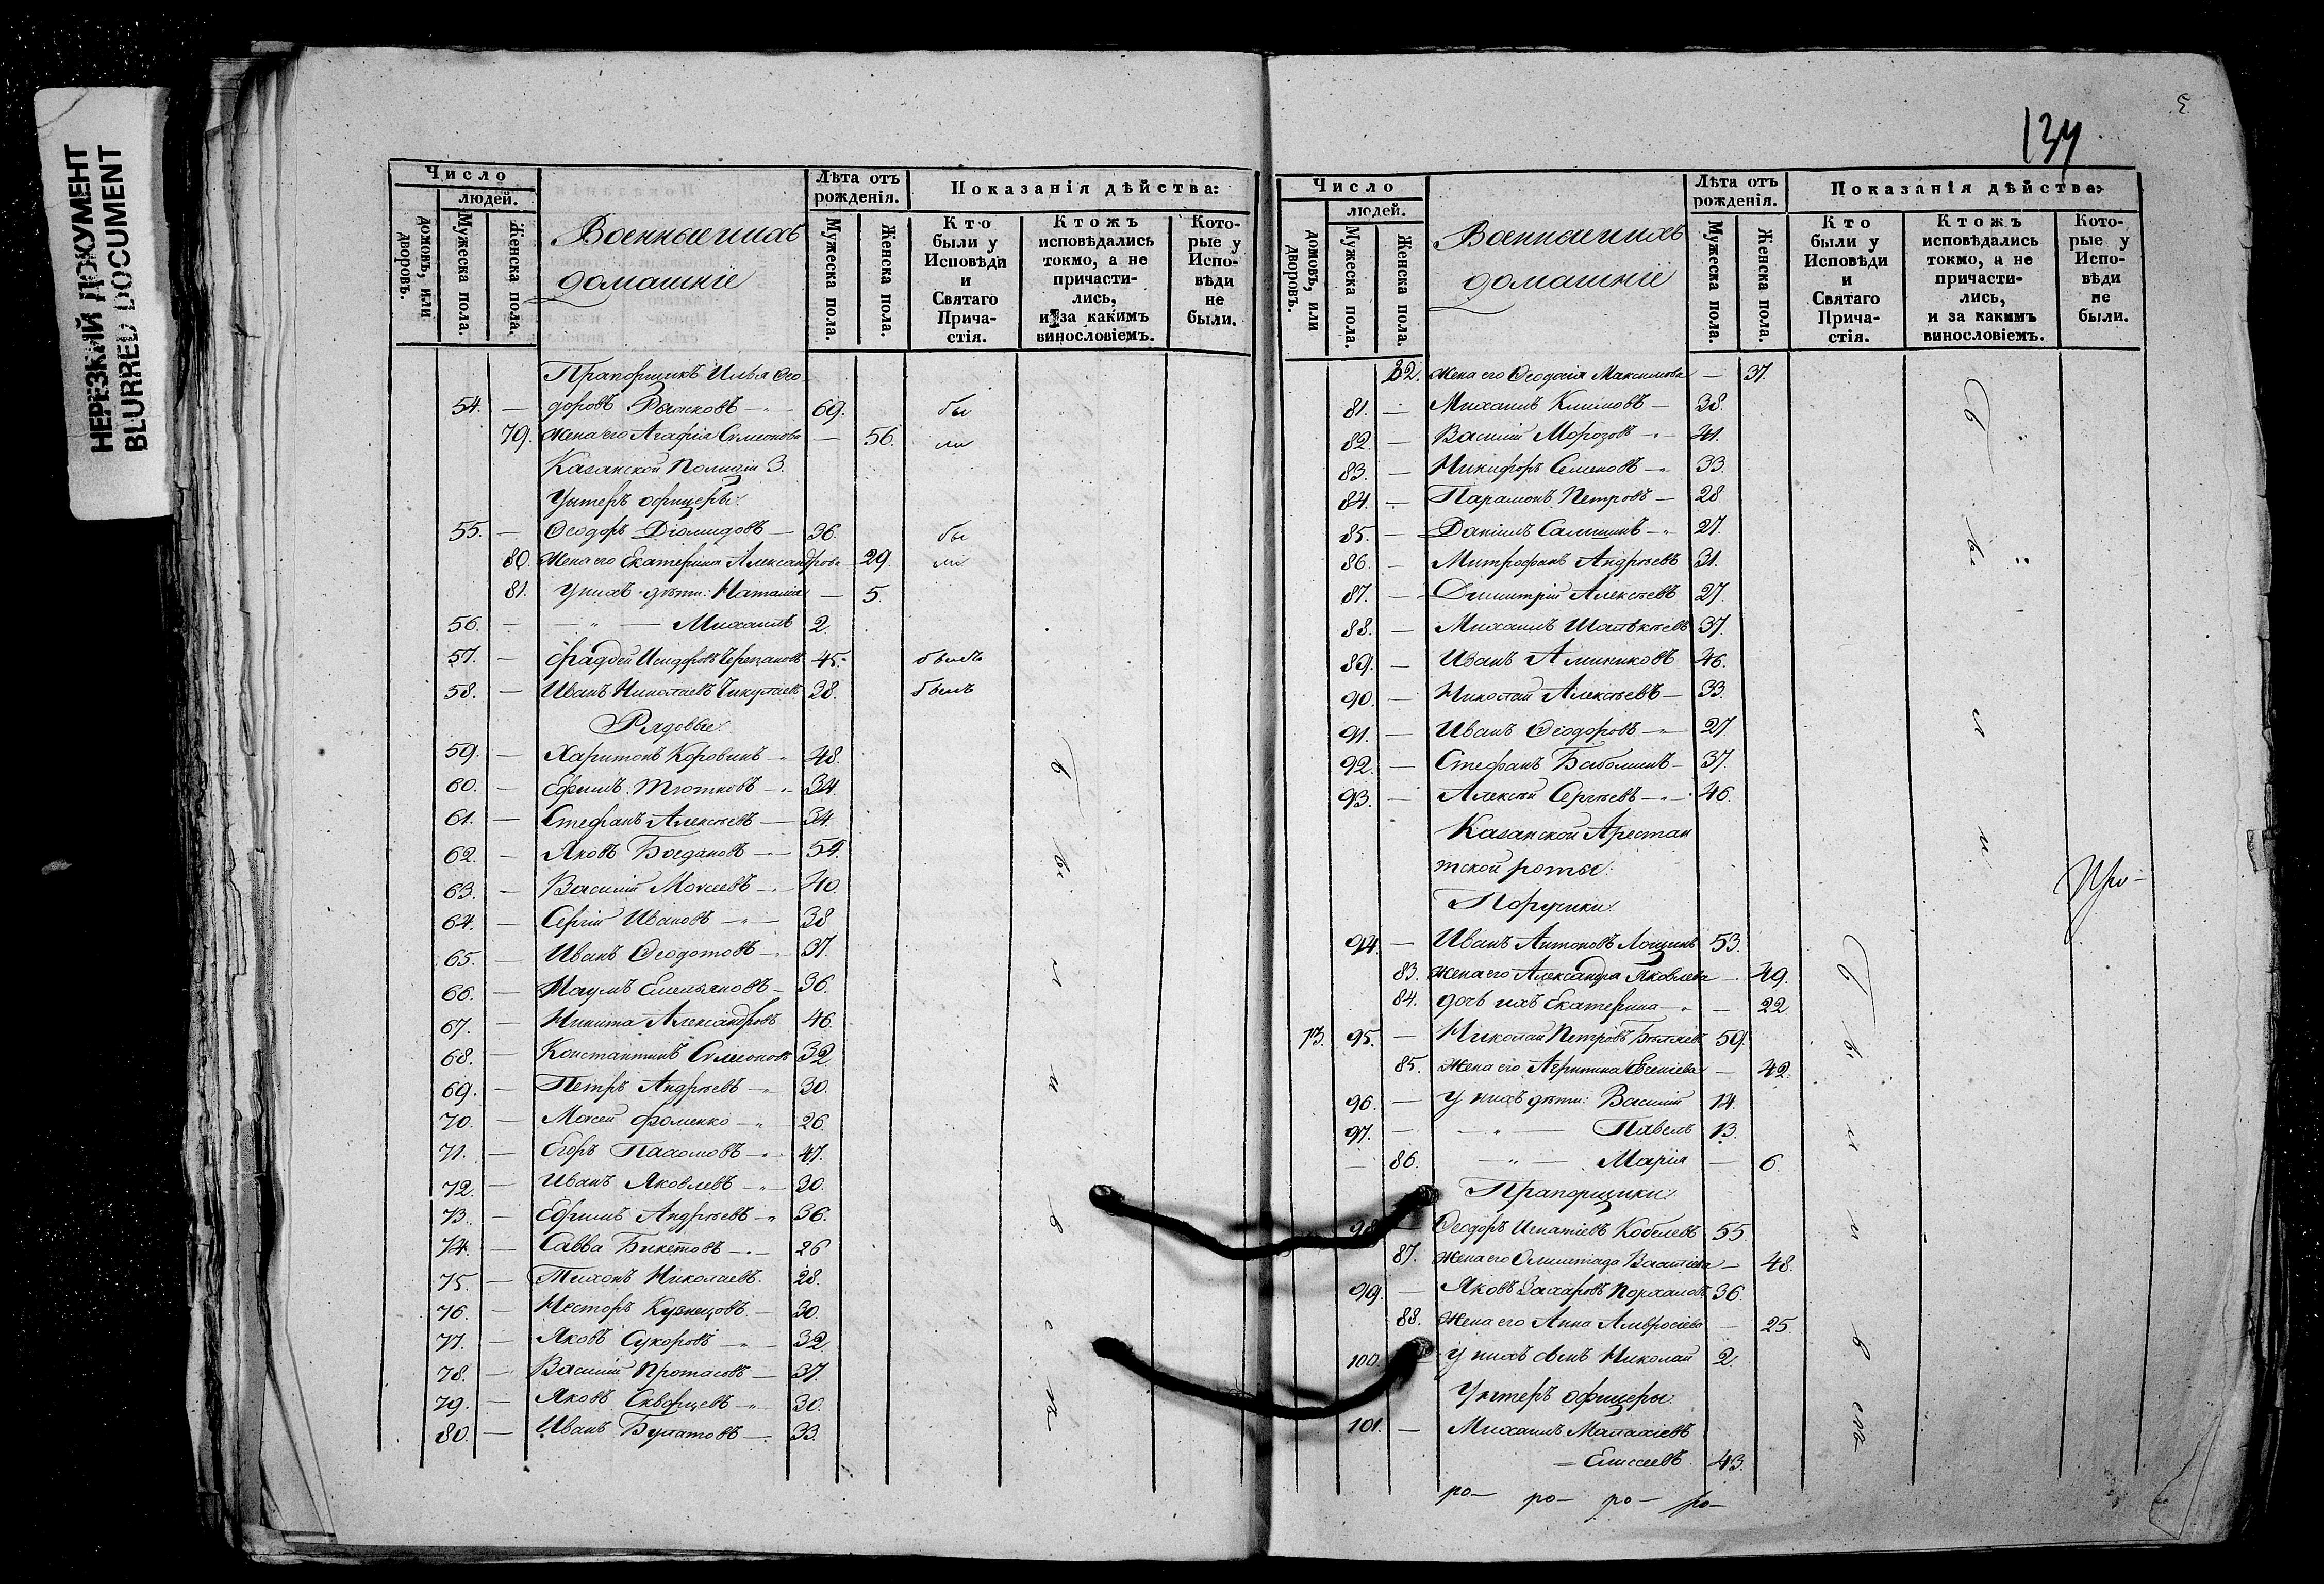 НЕРЕЗКИЙ ДОКУМЕНТ
BLURRED DOCUMENT
Число
людей.
домовъ, или дворовъ.
Мужеска пола.
Женска пола.
Военные и ихъ
домашніе
Лѣта отъ рожденія.
Мужеска пола.
Женска пола.
Показанія дѣйства:
Кто были у Исповѣди и Святаго Прича-стія.
Ктожъ исповѣдались токмо, а не причасти-лись, и за какимъ винословіемъ.
Кото-рые у Испо-вѣди не были.
Прапорщикъ Илья Ѳео
54. — доровъ Рыжковъ — 69. бы
79. жена его Агафія Симеонова — 56. ли
Казанской Полиціи 3.
Унтеръ офицеры:
55. — Ѳеодоръ Діомидовъ — 36. бы
80. Жена его Екатерина Александрова 29. ли
81. У нихъ дѣти: Наталія — 5.
56. — — " — Михаилъ 2.
57. — Фаддей Исидоровъ Черепановъ 45. былъ
58. — Иванъ Николаевъ 38. былъ
Рядовые:
59. — Харитонъ Коровинъ 48.
60. — Ефимъ Тютковъ 34.
61. — Стефанъ Алексѣевъ — 34.
62. — Яковъ Богдановъ — 54.
63. — Василій Моѵсеевъ — 40.
64. — Сергій Ивановъ — 38
65. — Иванъ Ѳеодотовъ — 37.
66. — Наумъ Емельяновъ — 36.
67. — Никита Александровъ 46.
68. — Константинъ Симеоновъ 32.
69. — Петръ Андреевъ 30.
70. — Моѵсей Фоменко — 26.
71. — Егоръ Пахомовъ — 47.
72. — Иванъ Яковлевъ — 30.
73. — Ефимъ Андреевъ — 36.
74. — Савва Бикетовъ — 26
75. — Тихонъ Николаевъ. 28.
76. — Несторъ Кузнецовъ — 30.
77. — Яковъ Сукоровъ — 32
78. — Василій Протасовъ — 37.
79. — Яковъ Скворцевъ 30.
80. — Иванъ Булатовъ — 33.
134
Число
людей.
домовъ, или дворовъ.
Мужеска пола.
Женска пола.
Военные и ихъ
домашніе
Лѣта отъ рожденія.
Мужеска пола.
Женска пола.
Показанія дѣйства:
Кто были у Исповѣди и Святаго Прича-стія.
Ктожъ исповѣдались токмо, а не причасти-лись, и за какимъ винословіемъ.
Кото-рые у Испо-вѣди не были.
82. Жена его Ѳеодосія Максимова — 37.
81. — Михаилъ Климовъ — 38.
82. — Василій Морозовъ — 41.
83. — Никифоръ Семеновъ 33.
84. — Парамонъ Петровъ — 28
85. — Даніилъ 27.
86. — Митрофанъ Андреевъ 31.
87. — Димитрій Алексѣевъ 27.
88. — Михаилъ 37.
89. — Иванъ Аминиковъ 46.
90. — Николай Алексѣевъ — 33.
91. — Иванъ Ѳеодоровъ — 27.
92. — Стефанъ Баболинъ — 37.
93. — Алексѣй Сергѣевъ — 46.
Казанской Арестан
тской роты:
Поручики:
94. — Иванъ Антоновъ Лощинъ 53.
83. Жена его Александра Яковлева — 49.
84. дочь ихъ Екатерина — 22.
13. 95. — Николай Петровъ Бѣляевъ 59.
85. Жена его Агрипина Евгеніева — 42.
96. — У нихъ дѣти: Василій 14.
97. — — " — Павелъ 13.
— 86. — " — Марія — 6.
Прапорщики:
98. — Ѳеодоръ Игнатіевъ Кобелевъ 55
87. Жена его Олимпіада Василіева — 48.
99. — Яковъ Захаровъ 36.
88. Жена его Анна Амвросіева — 25.
100. — У нихъ сынъ Николай 2.
Унтеръ офицеры:
101. — Михаилъ Малахіевъ
— Елисеевъ 43.
ро— ро— ро— ро—